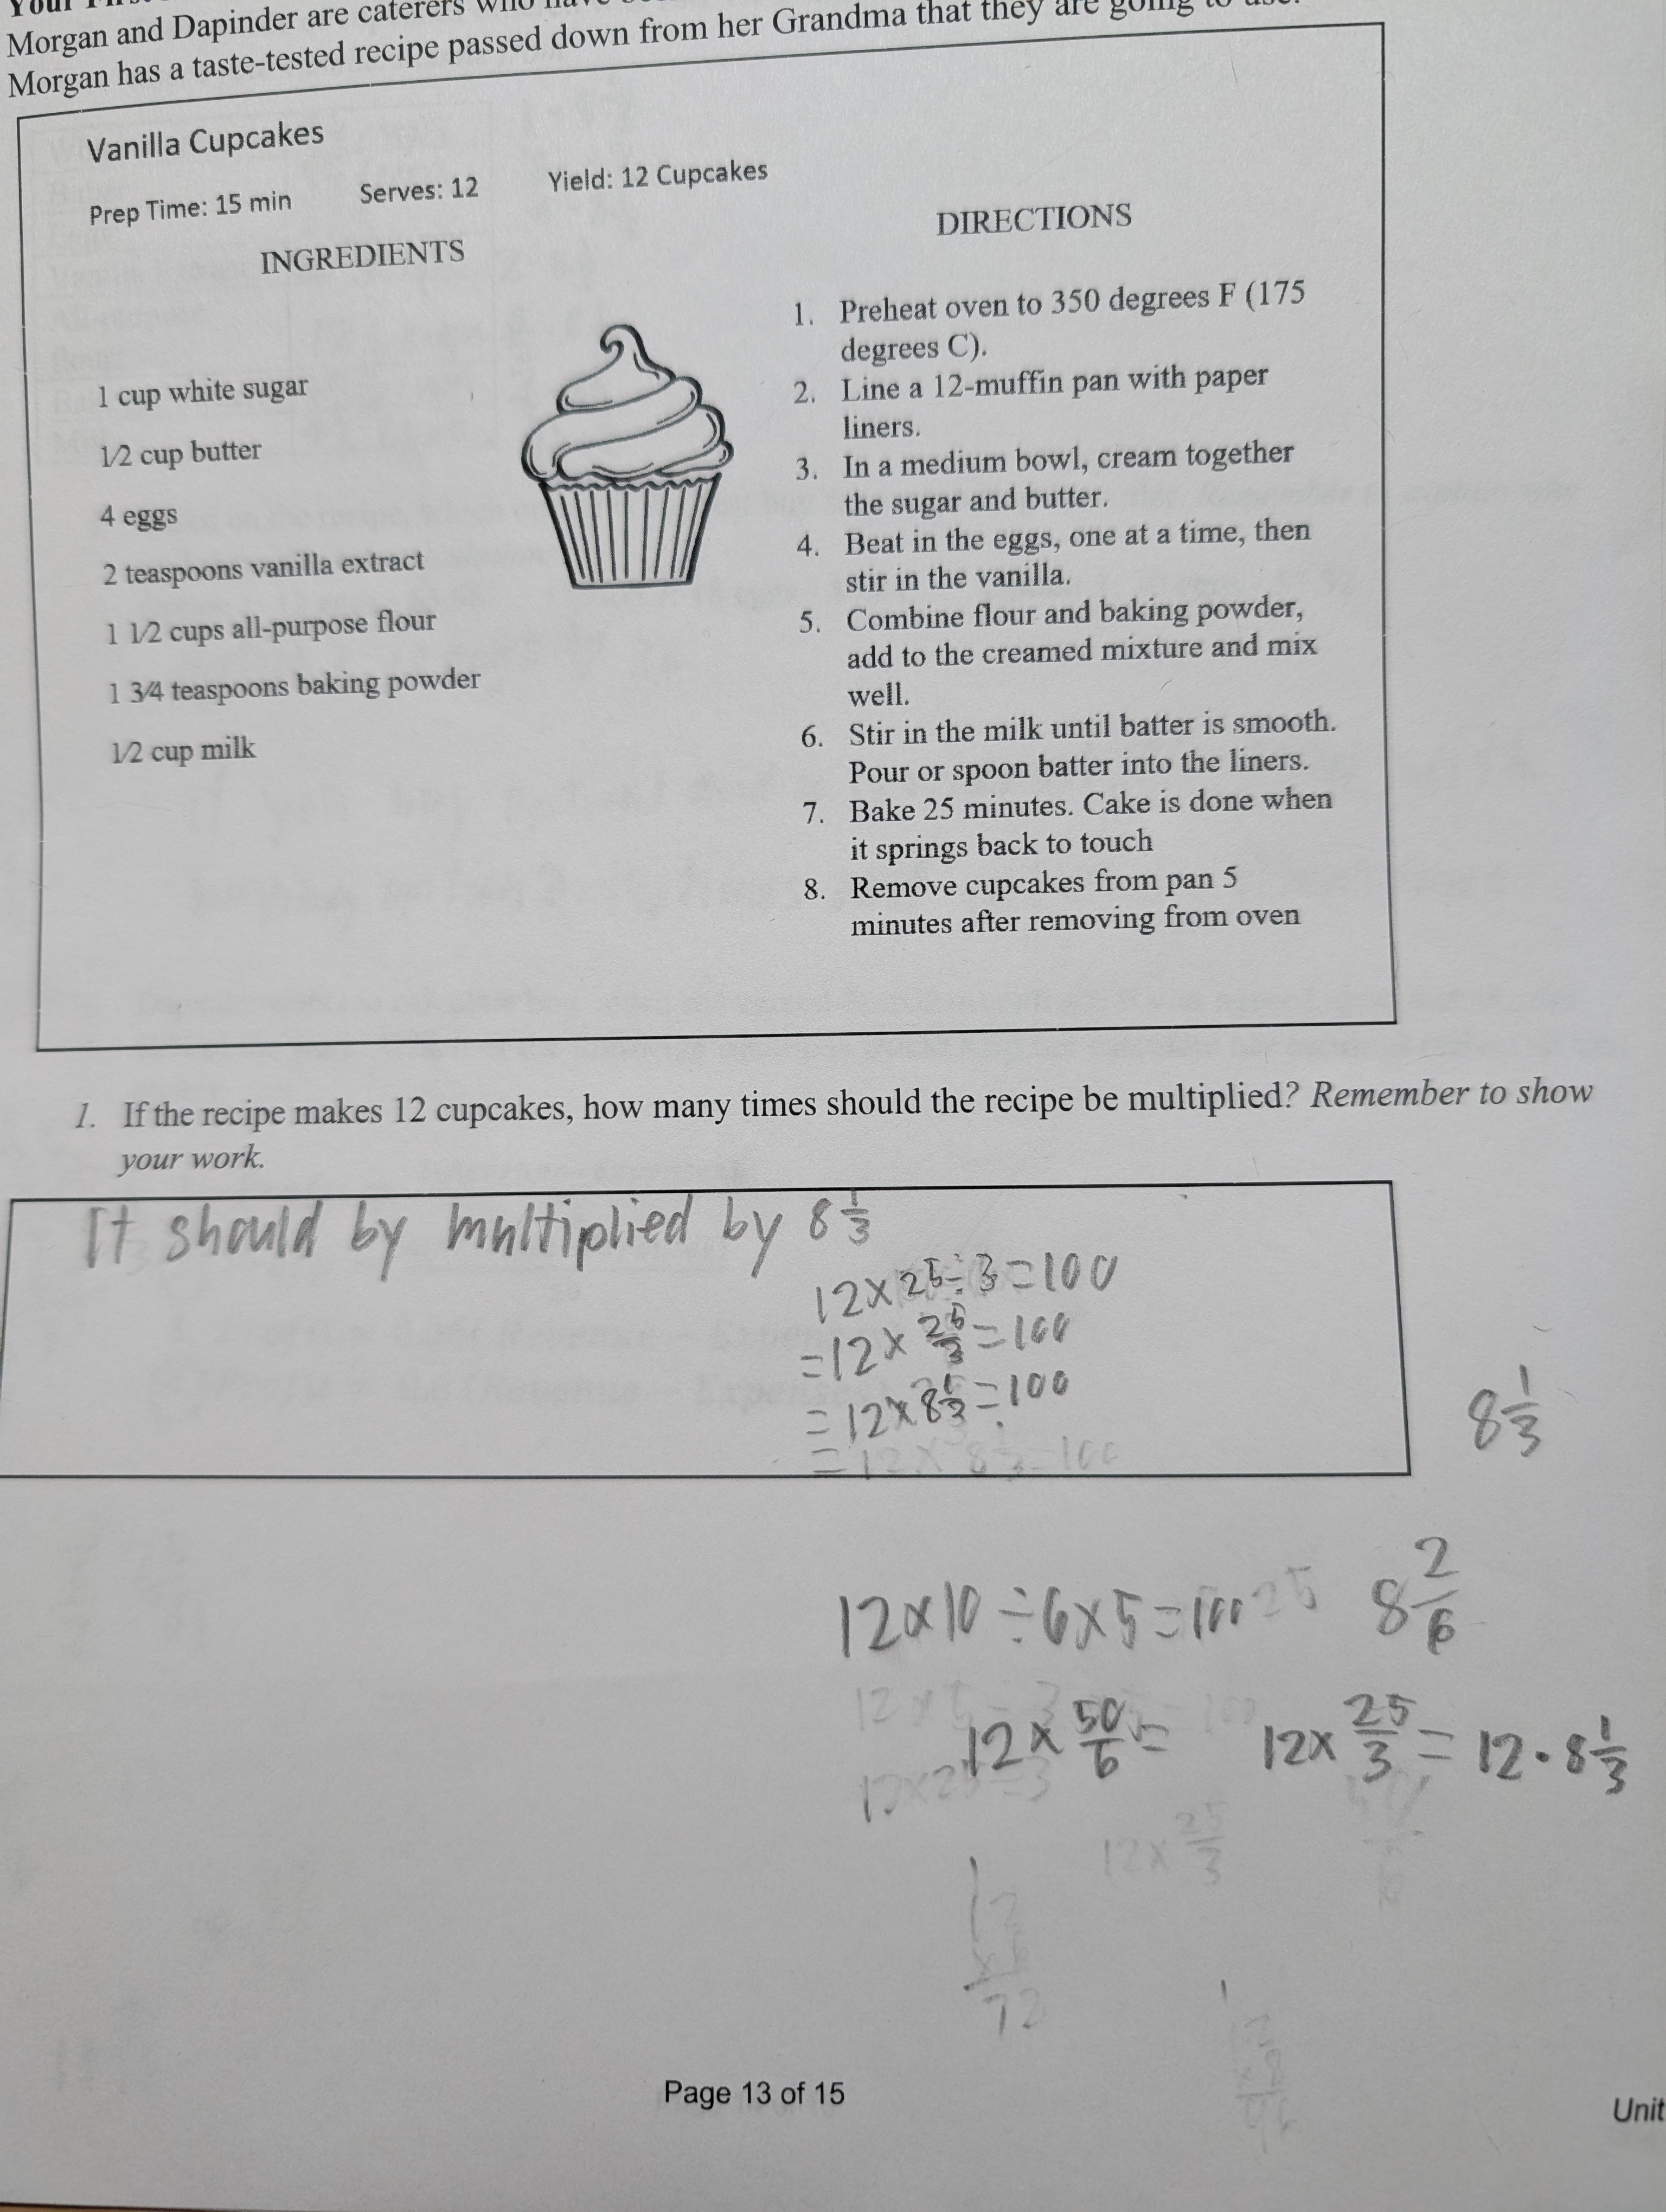 Morgan and Dapinder are caterers who
Morgan has a taste-tested recipe passed down from her Grandma that they are going to use.
Vanilla Cupcakes
Prep Time: 15 min Serves: 12 Yield: 12 Cupcakes
INGREDIENTS
1 cup white sugar
1/2 cup butter
4 eggs
2 teaspoons vanilla extract
1 1/2 cups all-purpose flour
1 3/4 teaspoons baking powder
1/2 cup milk
DIRECTIONS
1. Preheat oven to 350 degrees F (175
degrees C).
2. Line a 12-muffin pan with paper
liners.
3. In a medium bowl, cream together
the sugar and butter.
4. Beat in the eggs, one at a time, then
stir in the vanilla.
5. Combine flour and baking powder,
add to the creamed mixture and mix
well.
6. Stir in the milk until batter is smooth.
Pour or spoon batter into the liners.
7. Bake 25 minutes. Cake is done when
it springs back to touch
8. Remove cupcakes from pan 5
minutes after removing from oven
1. If the recipe makes 12 cupcakes, how many times should the recipe be multiplied? Remember to show
your work.
It should by multiplied by 8 1/3
12 x 25 ÷ 3 = 100
= 12 x 25/3 = 100
= 12 x 8 1/3 = 100
= 12 x 8 1/3 = 100
8 1/3
12 x 10 ÷ 6 x 5 = 100 25 8 2/6
12 x 50/6 = 12 x 25/3 = 12 · 8 1/3
12 x 25/3
12
x 6
72
Page 13 of 15
Unit